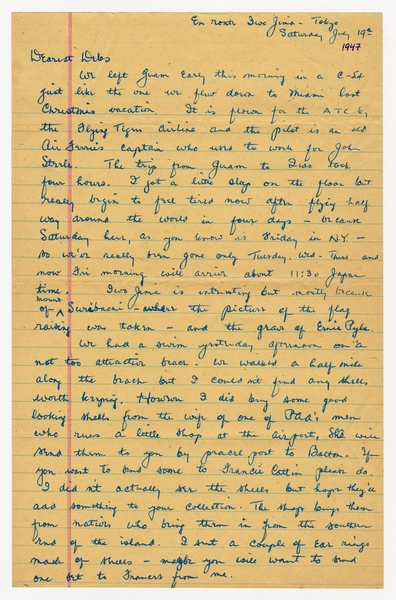 En route Iwo Jima - Tokyo
Saturday July 19th
1947
Dearest Debs
We left Guam early this morning in a C-54
just like the one we flew down to Miami last
Christmas vacation. It is flown for the ATC by
the Flying Tigers Airline and the pilot is an old
Air Ferries captain who used to work for John
Steele. The trip from Guam to Iwo took
four hours. I got a little sleep on the floor but
really begin to feel tired now after flying half
way around the world in four days - because
Saturday here, as you know is Friday in NY -
so we're really been gone only Tuesday. Wed - Thurs and
now Fri morning will arrive about 11:30 Japan
time. Iwo Jima is interesting but mostly because
of mount Suribachi - where the picture of the flag
raising was taken - and the grave of Ernie Pyle.
We had a swim yesterday afternoon on a
not too attractive beach. We walked a half mile
along the beach but I could n't find any shells
worth keeping. However I did buy some good
looking shells from the wife of one of PAA's men
who runs a little shop at the airport, She will
send them to you by parcel post to Boston. If
you want to send some to Francie Catlin please do.
I did n't actually see the shells but hope they'll
add something to your collection. The shop buys them
from natives who bring them in from the southern
end of the island. I sent a couple of ear rings
made of shells - maybe you will want to send
one set to Frances from me.